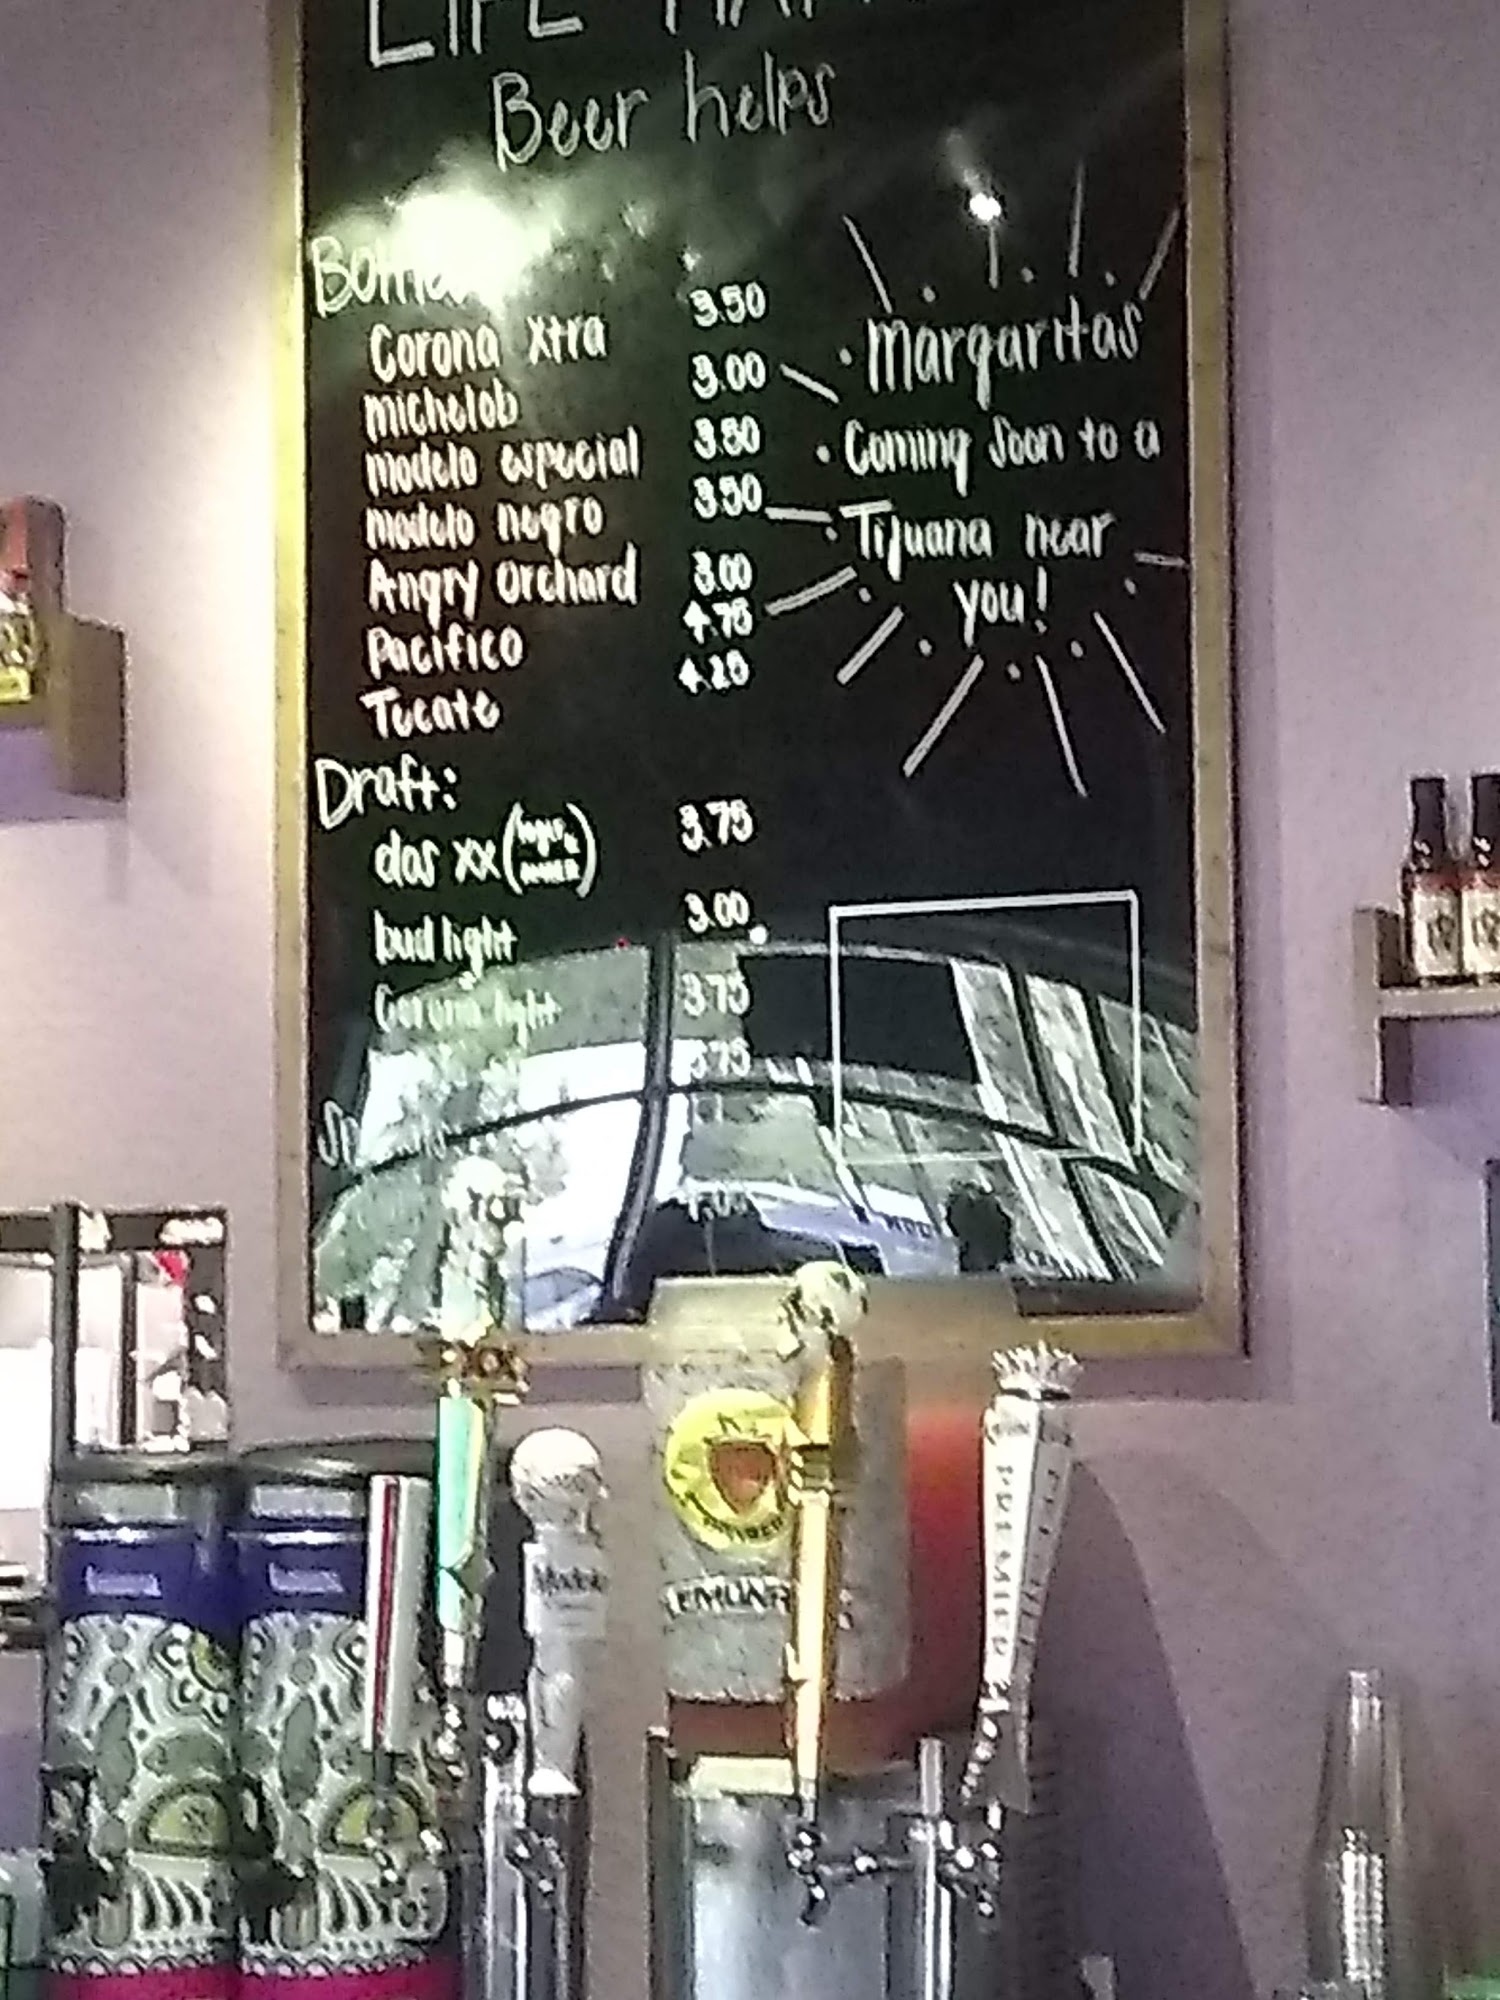 Beer helps
Corona Xtra 3.50
Michelob 3.00
Modelo especial 3.50
Modelo negro 3.50
Angry Orchard 3.00
Pacifico 4.75
Tecate 4.25
Draft:
dos xx 3.75
bud light 3.00
Corona light 3.75
3.75
Margaritas
Coming Soon to a
Tijuana near
you!
Modelo
PREMIER